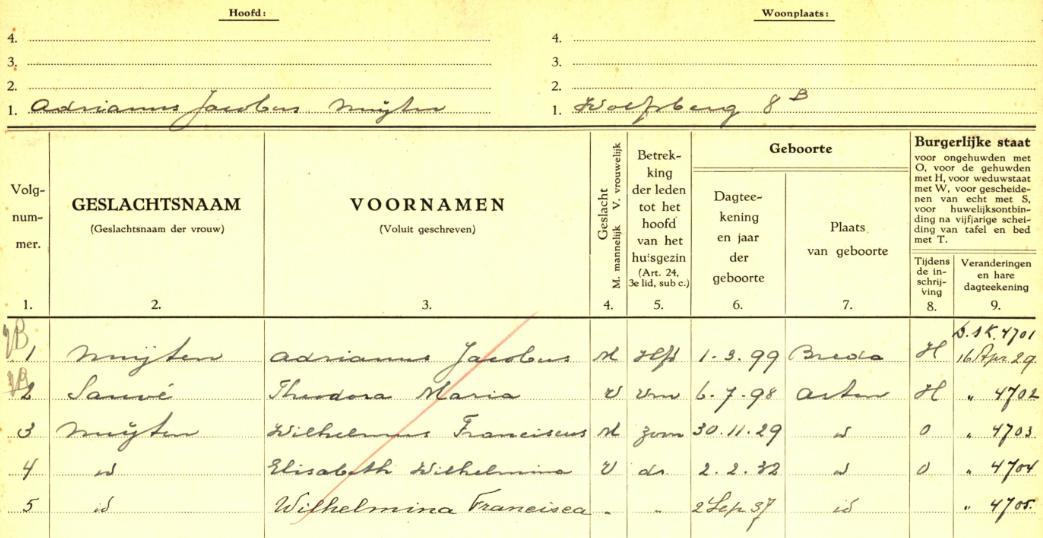 Hoofd: Woonplaats:
4. 4.
3. 3.
2. 2.
1. Adrianus Jacobus Muijten 1. Wolfsberg 8 B
Volg-
num-
mer.
GESLACHTSNAAM
(Geslachtsnaam der vrouw)
VOORNAMEN
(Voluit geschreven)
Geslacht
M. mannelijk V. vrouwelijk
Betrek-
king
der leden
tot het
hoofd
van het
huisgezin
(Art. 24,
3e lid, sub c.)
Geboorte
Dagtee-
kening
en jaar
der
geboorte
Plaats
van geboorte
Burgerlijke staat
voor ongehuwden met
O, voor de gehuwden
met H, voor weduwstaat
met W, voor gescheide-
nen van echt met S,
voor huwelijksontbin-
ding na vijfjarige schei-
ding van tafel en bed
met T.
Tijdens
de in-
schrij-
ving
Veranderingen
en hare
dagteekening
1. 2. 3. 4. 5. 6. 7. 8. 9.
4701
1 Muijten Adrianus Jacobus M Hfd 1.3.99 Breda H 16 Apr. 29
2 Sauvé Theodora Maria V Vrw 6.7.98 Asten H " 4702
3 Muijten Wilhelmus Franciscus M zoon 30.11.29 id O " 4703
4 id Elisabeth Wilhelmina V dr. 2.2.32 id O " 4704
5 id Wilhelmina Francisca " " 2 Sep. 37 id " 4705.